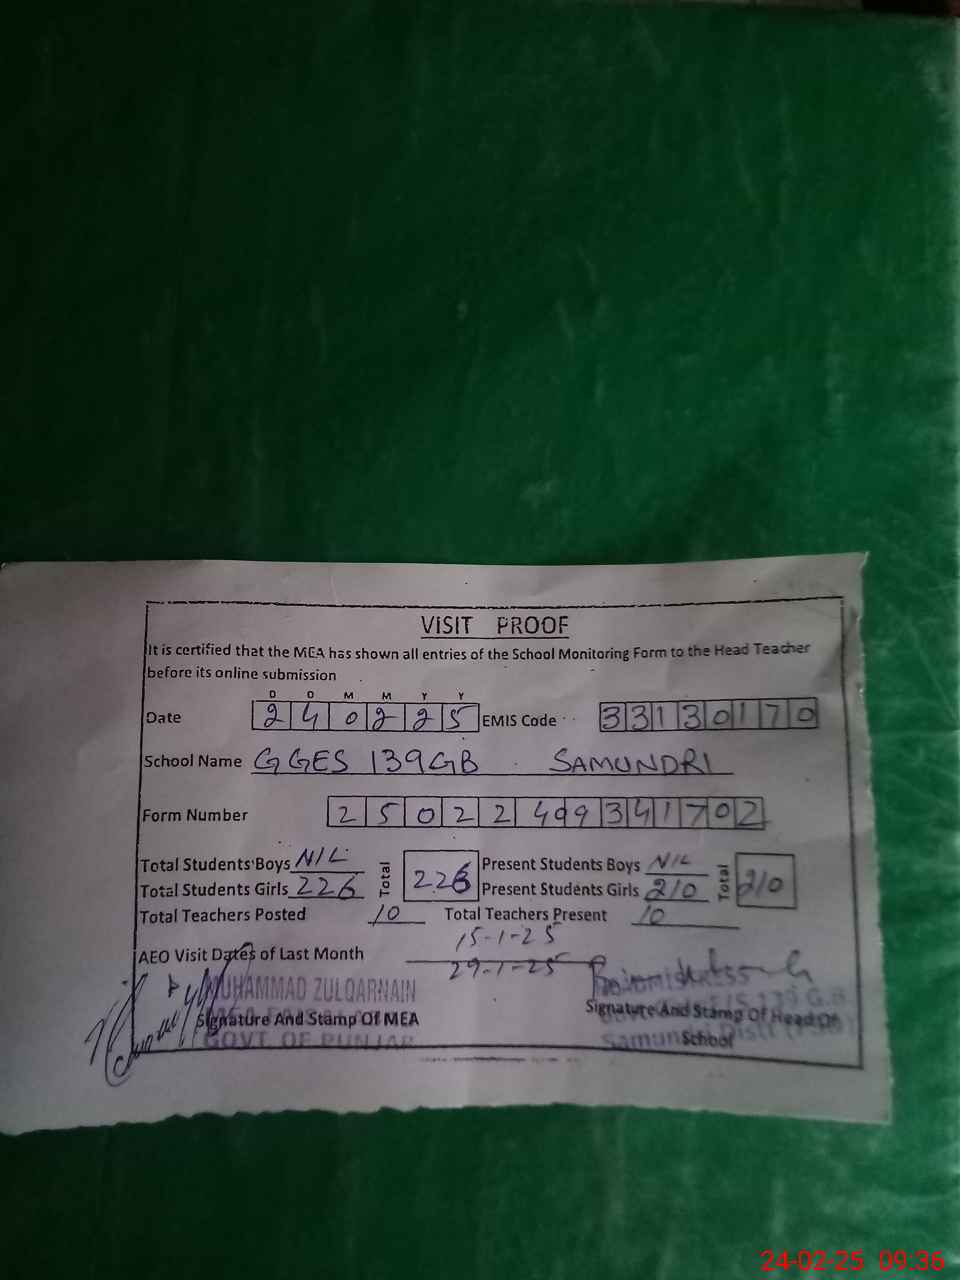 VISIT PROOF
It is certified that the MEA has shown all entries of the School Monitoring Form to the Head Teacher
before its online submission
D D M M Y Y
Date 2 4 0 2 2 5 EMIS Code 3 3 1 3 0 1 7 0
School Name GGES 139GB SAMUNDRI
Form Number 2 5 0 2 2 4 9 9 3 4 1 7 0 2
Total Students Boys NIL Total 226 Present Students Boys NIL Total 210
Total Students Girls 226 Present Students Girls 210
Total Teachers Posted 10 Total Teachers Present 10
AEO Visit Dates of Last Month 15-1-25
29-1-25
MUHAMMAD ZULQARNAIN
Signature And Stamp Of MEA
GOVT. OF PUNJAB
Signature And Stamp Of Head Of
School
139 G.B
24-02-25 09:36